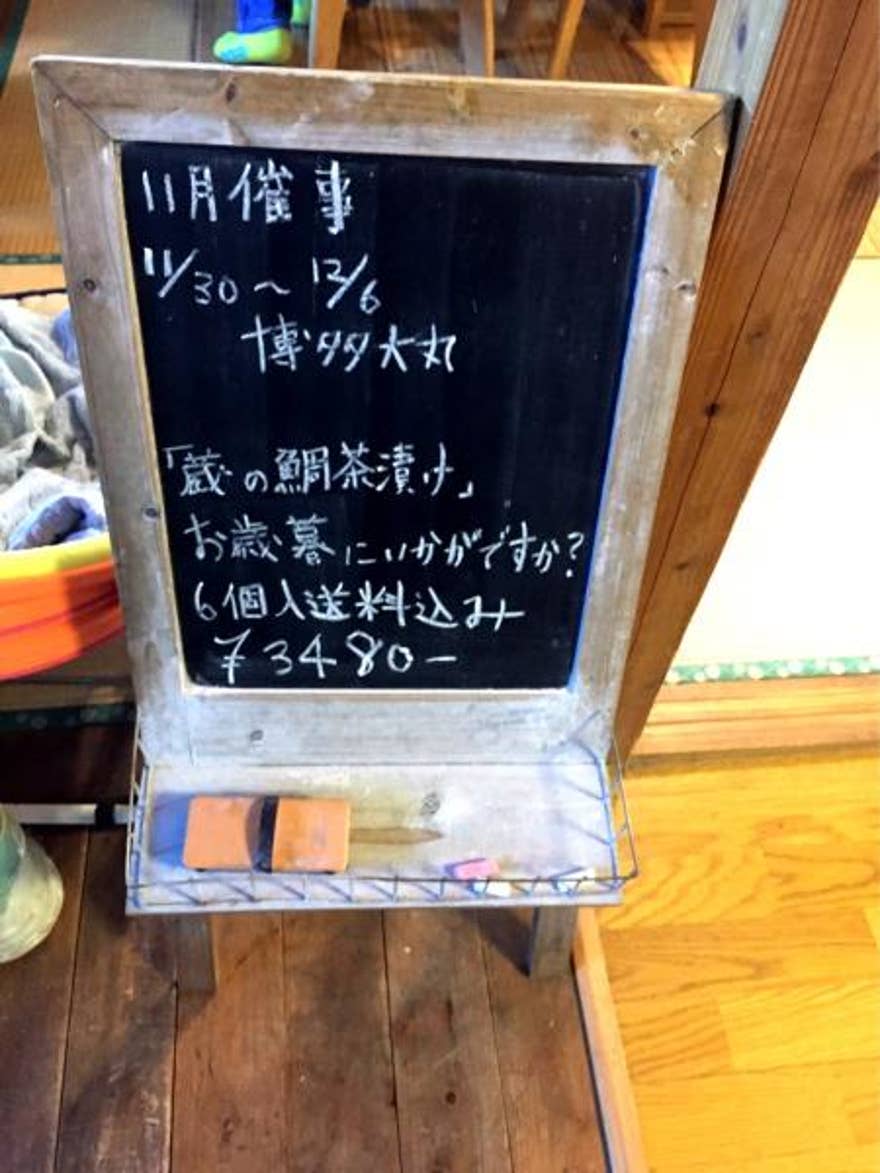 11月催事
11/30～12/6
博多大丸
「蔵の鯛茶漬け」
お歳暮にいかがですか?
6個入送料込み
¥3480-